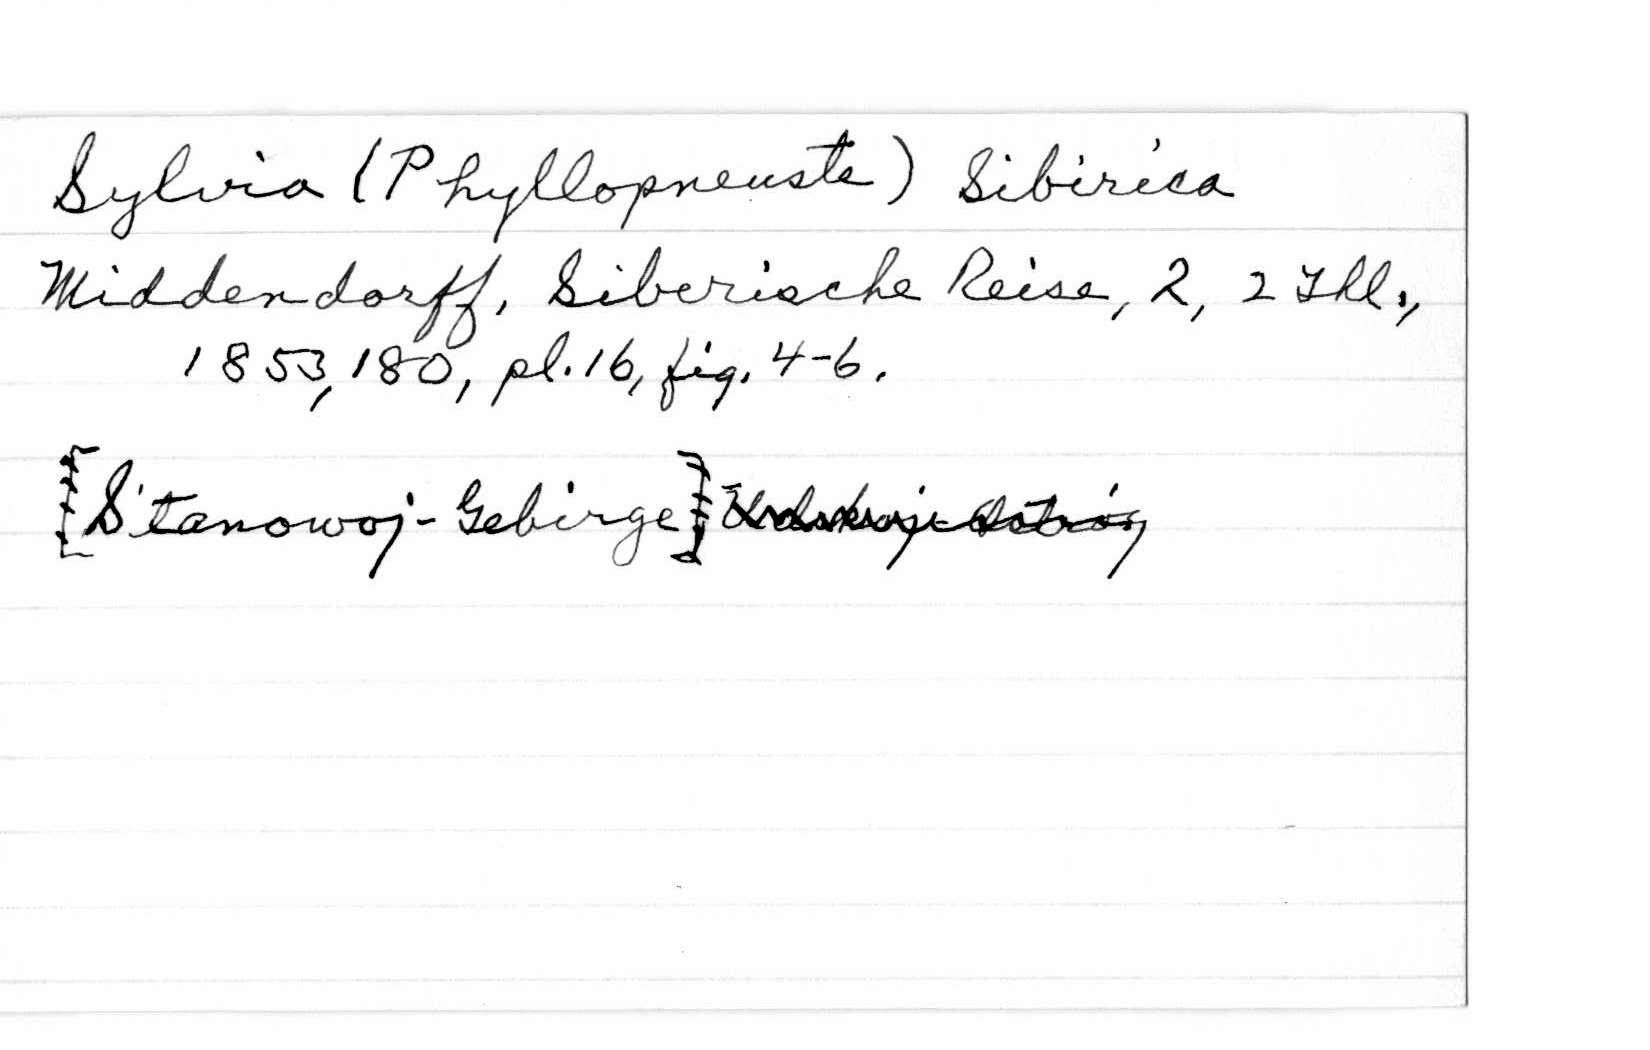 Sylvia (Phyllopneuste) Sibirica
Middendorff, Siberische Reise, 2, 2 Thl.,
1853, 180, pl. 16, fig. 4-6.
[Stanowoj-Gebirge]